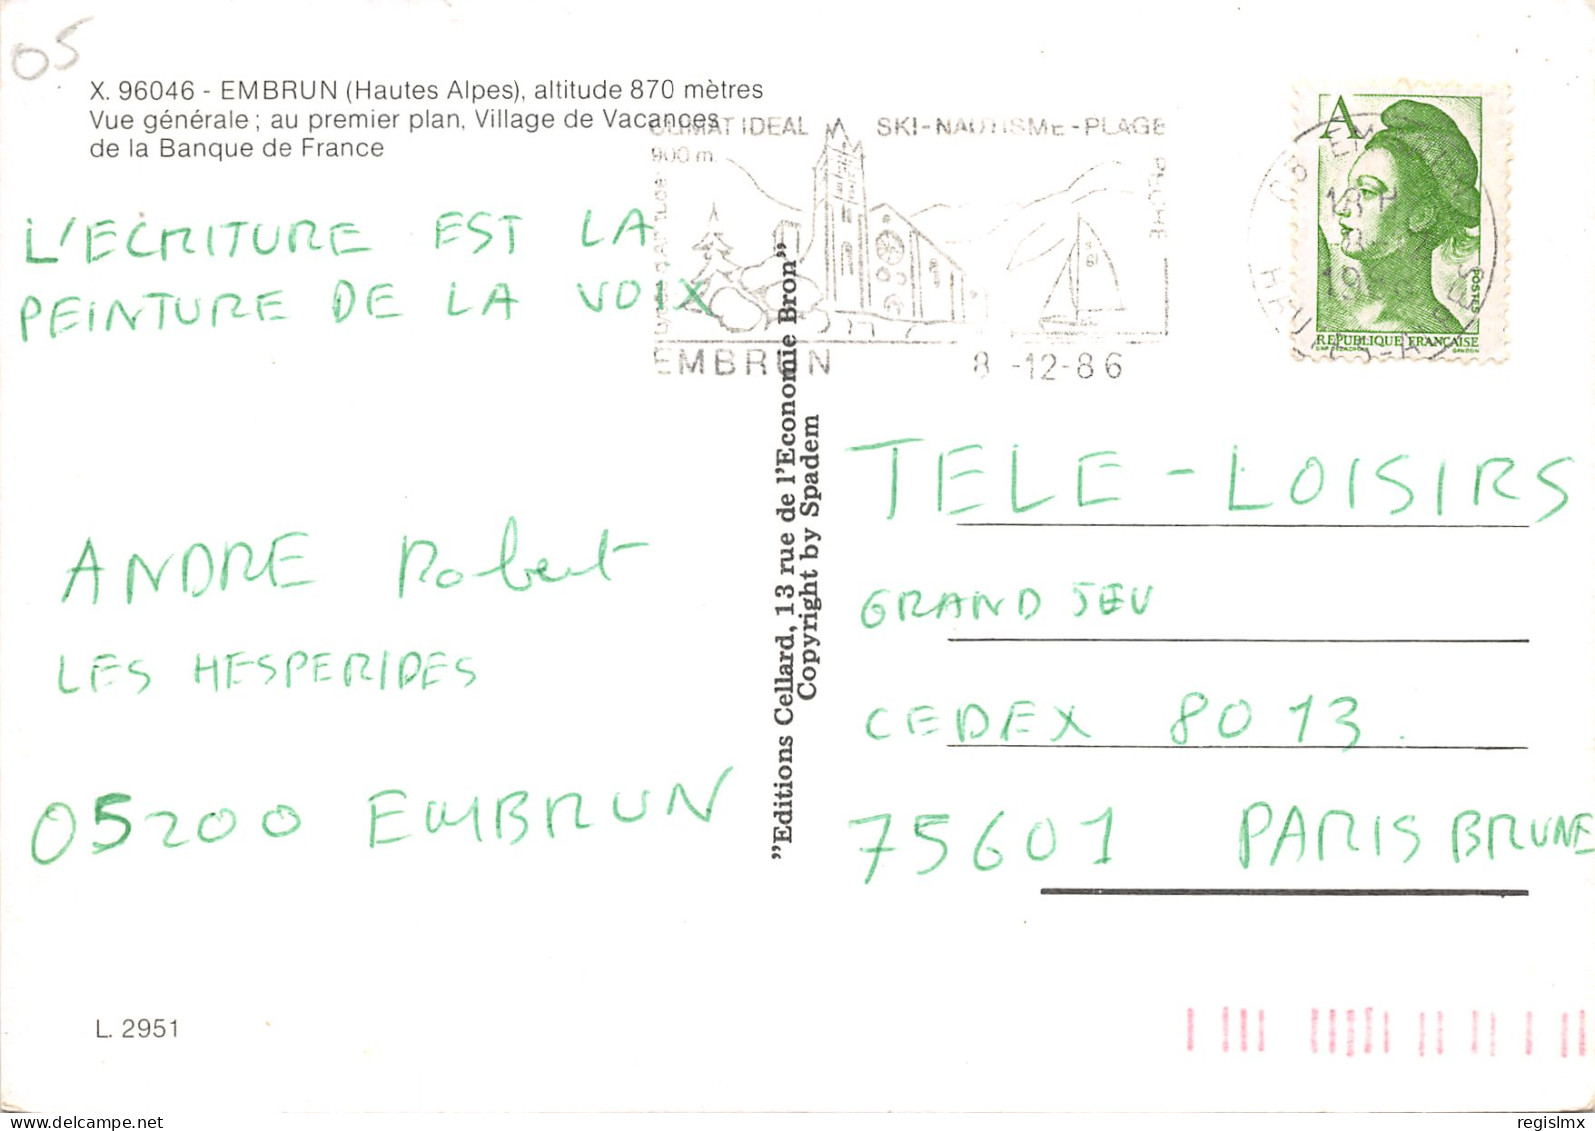 05
X. 96046 - EMBRUN (Hautes Alpes), altitude 870 mètres
Vue générale ; au premier plan, Village de Vacances
de la Banque de France
CLIMAT IDEAL SKI-NAUTISME-PLAGE
900 m.
EMBRUN 8 -12-86
A
POSTES
REPUBLIQUE FRANÇAISE
L'ECRITURE EST LA
PEINTURE DE LA VOIX
ANDRE Robert
LES HESPERIDES
05200 EMBRUN
"Editions Cellard, 13 rue de l'Economie Bron"
Copyright by Spadem
TELE-LOISIRS
GRAND JEU
CEDEX 8013.
75601 PARIS BRUNE
L. 2951
regislmx